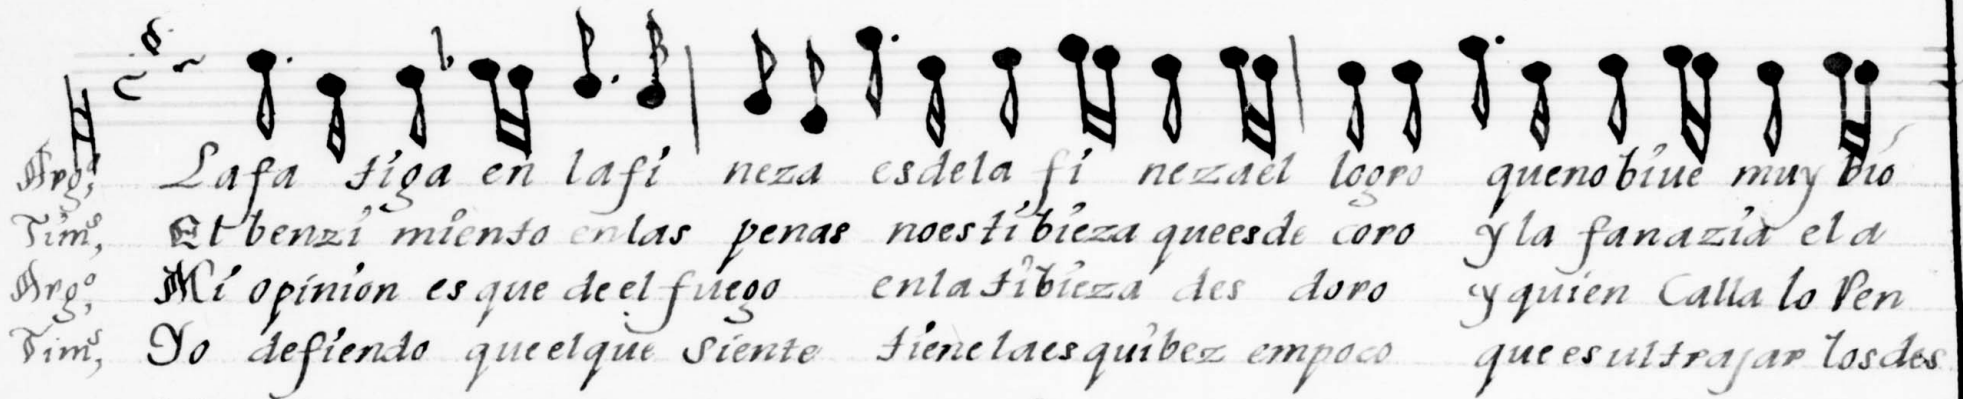 Argº, La fa tiga en lafi neza esdela fi nezael logro quenobiue muy bio
Timˢ, El benzi miento enlas penas noestibieza queesde coro y la fanazia el a
Argº, Mi opinion es que de el fuego enlatibieza des doro y quien Calla lo Pen
Timˢ, Yo defiendo queelque siente tienelaesquibez empoco que es ultrajar losdes